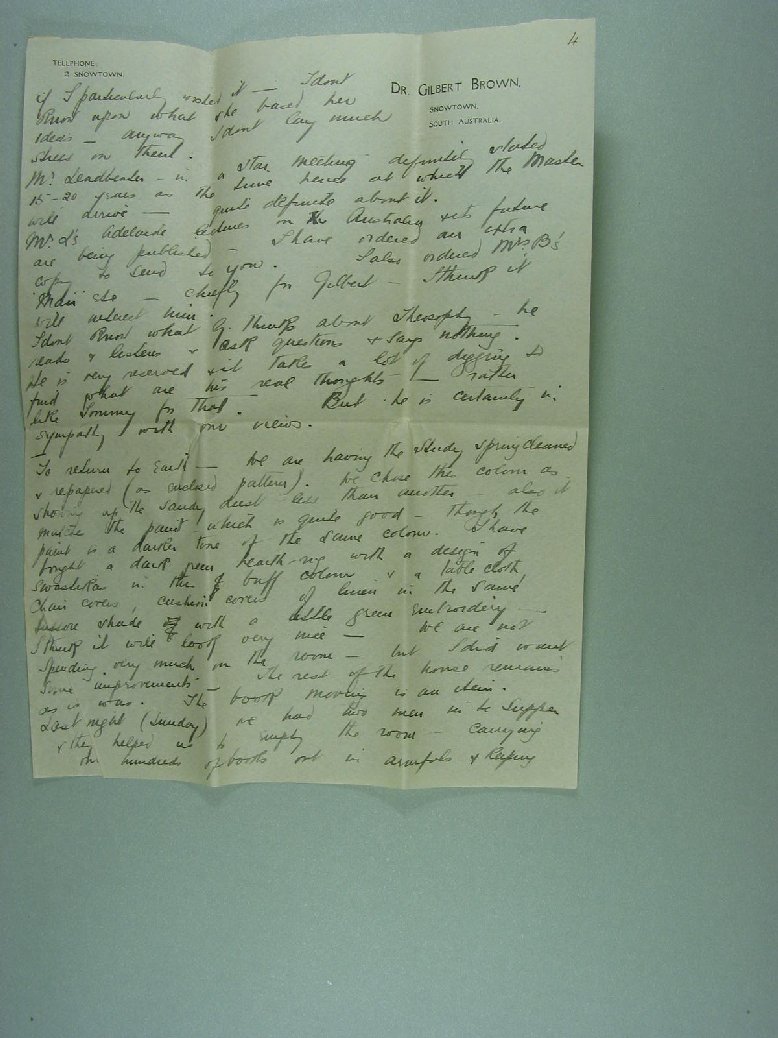 4
TELEPHONE:
2 SNOWTOWN.
DR. GILBERT BROWN,
SNOWTOWN,
SOUTH AUSTRALIA
if I particularly wished it — I dont
know upon what she based her
ideas — anyway I dont lay much
stress on them.
Mr Leadbeater – in a star meeting definitely stated
15–20 years as the time hence at which the Master
will arrive — quite definite about it.
Mr L's Adelaide lectures on the Australian & its future
are being published — I have ordered an extra
copy to send to you. I also ordered Mrs B's
— chiefly for Gilbert — I think it
will interest him.
I dont know what G. thinks about Theosophy — he
reads & listens & ask questions & says nothing.
He is very reserved & it takes a lot of digging to
find what are his real thoughts — rather
like Tommy for that. But he is certainly in
sympathy with our views.
To return to Earth — We are having the study springcleaned
& repapered (as enclosed pattern). We chose the colour as
showing up the sandy dust less than another — also it
matches the paint which is quite good — though the
paint is a darker tone of the same colour. I have
bought a dark green hearth-rug with a design of
swastikas in the buff colour & a table cloth
chair covers, cushion covers of linen in the same
shade with a little green embroidery —
I think it will look very nice — We are not
spending very much on the room — but I did want
some improvements — The rest of the house remains
as is was. The book moving is an item.
Last night (Sunday) we had two men in to supper
& they helped us to empty the room — carrying
out hundreds of books out in armfuls & keeping